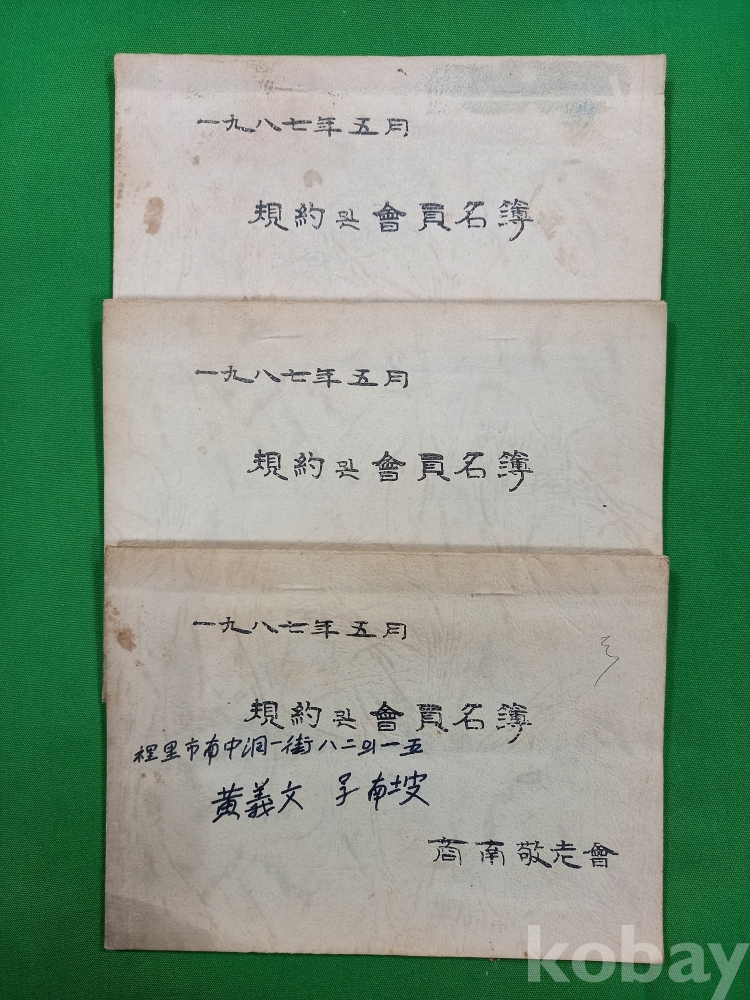 一九八七年五月
規約및會員名簿
一九八七年五月
規約및會員名簿
一九八七年五月
規約및會員名簿
裡里市南中洞一街八二의一五
黃義文 号南坡
裔南敬老會
kobay